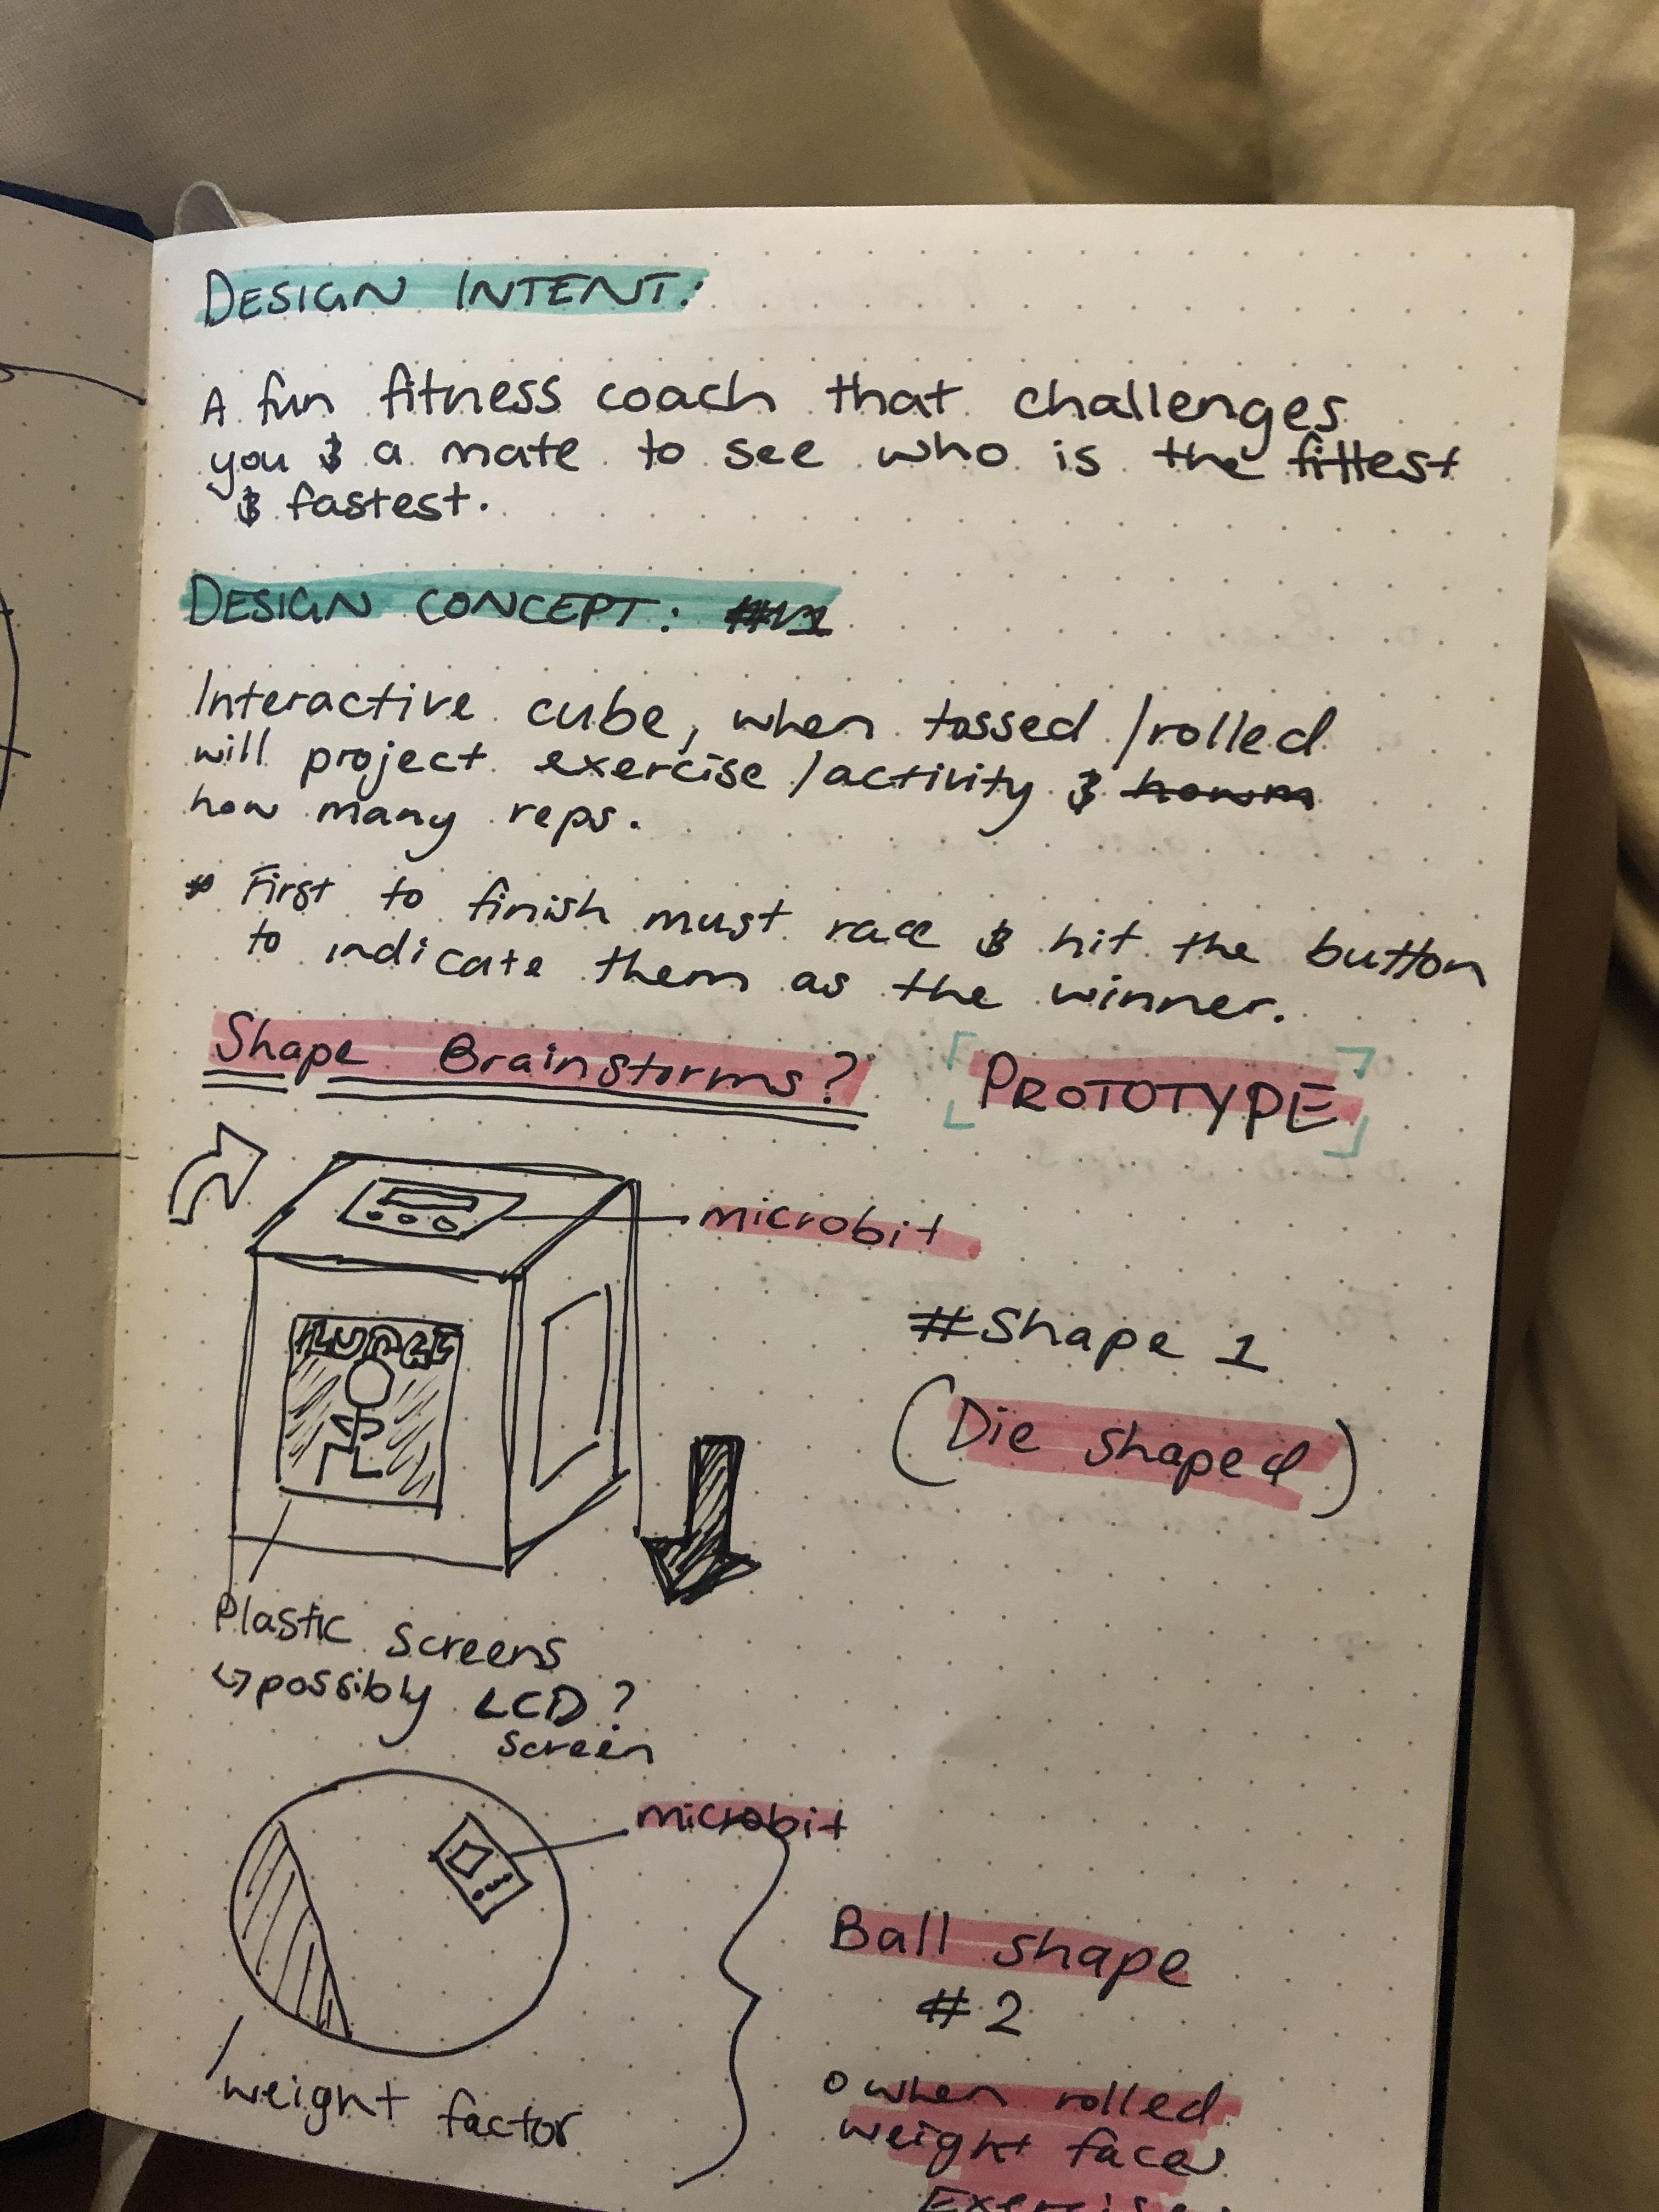 DESIGN INTENT:
A fun fitness coach that challenges
you & a mate to see who is the fittest
& fastest.
DESIGN CONCEPT: #1
Interactive cube, when tossed /rolled
will project exercise /activity & howm
how many reps.
* First to finish must race & hit the button
to indicate them as the winner.
Shape Brainstorms?
PROTOTYPE
microbit
LUNGE
#Shape 1
(Die shaped)
Plastic screens
↳ possibly LCD?
screen
microbit
Ball shape
#2
weight factor
o when rolled
weight faces
Exercise